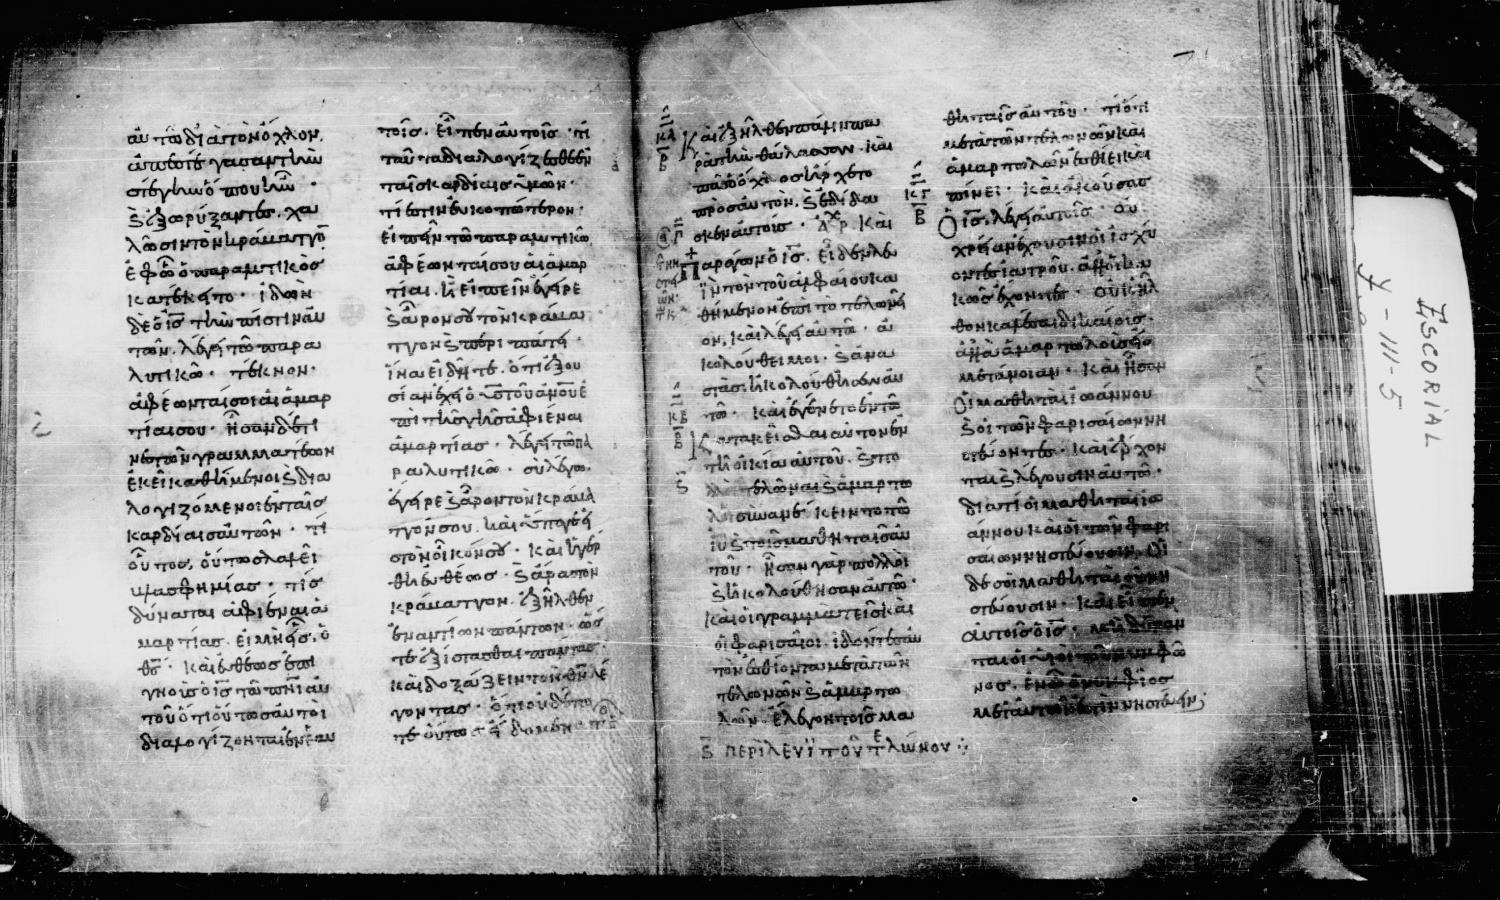 αὐτῶ διὰ τὸν ὄχλον.
ἀπεστέγασαν τὴν
στέγην ὅπου ἦν·
καὶ ἐξορύξαντες· χα
λῶσι τὸν κράβαττον
ἐφ' ὧ ὁ παραλυτικὸς
κατέκειτο· ἰδὼν
δὲ ὁ ις τὴν πίστιν αὐ
τῶν. λέγει τῶ παρα
λυτικῶ· τέκνον·
ἀφέωνταί σοι αἱ ἁμαρ
τίαι σου· ἦσαν δέ τι
νες τῶν γραμματέων
ἐκεῖ καθήμενοι καὶ δια
λογιζόμενοι ἐν ταῖς
καρδίαις αὐτῶν· τί
οὗτος οὕτως λαλεῖ
βλασφημίας· τίς
δύναται ἀφιέναι ἁ
μαρτίας. εἰ μὴ εἷς. ὁ
θς· καὶ εὐθέως ἐπι
γνοὺς ὁ ις τῶ πνι αὐ
τοῦ ὅτι οὕτως αὐτοὶ
διαλογίζονται ἐν ἑαυ
τοῖς. εἶπεν αὐτοῖς· τί
ταῦτα διαλογίζεσθε ἐν
ταῖς καρδίαις ὑμῶν·
τί ἐστιν εὐκοπώτερον·
εἰπεῖν τῶ παραλυτικῶ
ἀφέωνταί σου αἱ ἁμαρ
τίαι. ἢ εἰπεῖν ἔγειρε
καὶ ἆρόν σου τὸν κράβα
ττον καὶ περιπάτει·
ἵνα εἰδῆτε. ὅτι ἐξου
σίαν ἔχει ὁ υς τοῦ ανου ἐ
πὶ τῆς γῆς ἀφιέναι
ἁμαρτίας· λέγει τῶ πα
ραλυτικῶ· σοὶ λέγω.
ἔγειρε καὶ ἆρον τὸν κράβα
ττόν σου. καὶ ὕπαγε εἰ
ς τὸν οἶκόν σου· καὶ ἠγέρ
θη εὐθέως· καὶ ἄρας τὸν
κράβαττον. ἐξῆλθεν
ἐναντίον πάντων· ὥσ
τε ἐξίστασθαι πάντας·
καὶ δοξάζειν τὸν θν λέ
γοντας· ὅτι οὐδέπο
τε οὕτως εἴδομεν
κα
β
Καὶ ἐξῆλθεν πάλιν πα
ρὰ τὴν θάλασσαν. καὶ
πᾶς ὁ ὄχλος ἤρχετο
πρὸς αὐτὸν. καὶ ἐδίδα
σκεν αὐτούς· Ἀρχ. Καὶ
Παράγων ὁ ις. εἶδεν λευ
ῒν τὸν τοῦ ἀλφαίου κα
θήμενον ἐπὶ τὸ τελώνι
ον. καὶ λέγει αὐτῶ· ἀ
κολούθει μοι· καὶ ἀνα
στὰς ἠκολούθησεν αὐ
τῶ· καὶ ἐγένετο ἐν τῶ
κβ
β
Κατακεῖσθαι αὐτὸν ἐν
τῆ οἰκία αὐτοῦ. καὶ πο
τελῶναι καὶ ἁμαρτω
λοὶ συνανέκειντο τῶ
ιυ καὶ τοῖς μαθηταῖς αὐ
τοῦ· ἦσαν γὰρ πολλοὶ
καὶ ἠκολούθησαν αὐτῶ·
καὶ οἱ γραμματεῖς καὶ
οἱ φαρισαῖοι. ἰδόντες αὐ
τὸν ἐσθίοντα μετὰ τῶν
τελωνῶν καὶ ἁμαρτω
λῶν. ἔλεγον τοῖς μα
ϛ ΠΕΡὶ ΛΕΥῒ ΤΟῦ ΤΕΛώΝΟΥ
θηταῖς αὐτοῦ· τί ὅτι
μετὰ τῶν τελωνῶν καὶ
ἁμαρτωλῶν ἐσθίει καὶ
πίνει· καὶ ἀκούσας
κγ
β
Ὁ ις. λέγει αὐτοῖς· οὐ
χρείαν ἔχουσιν οἱ ἰσχύ
οντες ἰατροῦ. ἀλλ' οἱ κα
κῶς ἔχοντες· οὐκ ἦλ
θον καλέσαι δικαίους·
ἀλλὰ ἁμαρτωλοὺς εἰς
μετάνοιαν· καὶ ἦσαν
Οἱ μαθηταὶ ἰωάννου
καὶ οἱ τῶν φαρισαίων νη
στεύοντες· καὶ ἔρχον
ται καὶ λέγουσιν αὐτῶ·
διατί οἱ μαθηταὶ ἰω
άννου καὶ οἱ τῶν φαρι
σαίων νηστεύουσιν. οἱ
δὲ σοὶ μαθηταὶ οὐ νη
στεύουσιν· καὶ εἶπεν
αὐτοῖς ὁ ις· μὴ δύναν
ται οἱ υἱοὶ τοῦ νυμφῶ
νος. ἐν ὧ ὁ νυμφίος
μετ' αὐτῶν ἐστιν νηστεύειν;
ESCORIAL
Y-III-5